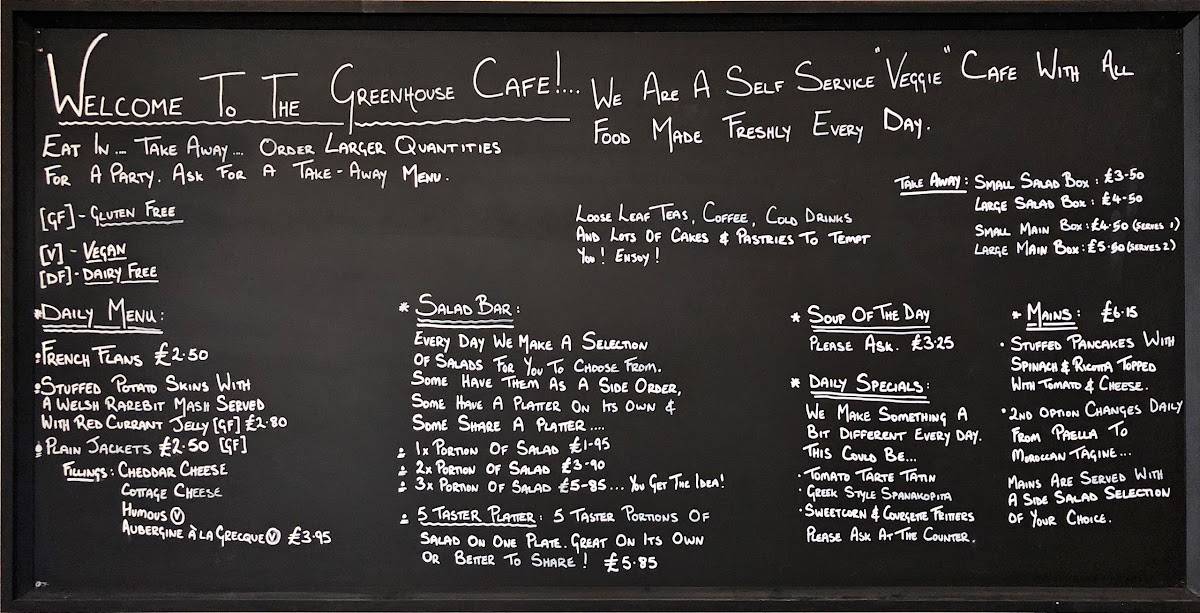 WELCOME TO THE GREENHOUSE CAFE!...
WE ARE A SELF SERVICE "VEGGIE" CAFE WITH ALL
FOOD MADE FRESHLY EVERY DAY.
EAT IN... TAKE AWAY... ORDER LARGER QUANTITIES
FOR A PARTY. ASK FOR A TAKE-AWAY MENU.
[GF] - GLUTEN FREE
[V] - VEGAN
[DF] - DAIRY FREE
LOOSE LEAF TEAS, COFFEE, COLD DRINKS
AND LOTS OF CAKES & PASTRIES TO TEMPT
YOU! ENJOY!
TAKE AWAY: SMALL SALAD BOX: £3-50
LARGE SALAD BOX: £4-50
SMALL MAIN BOX: £4.50 (SERVES 1)
LARGE MAIN BOX: £5.50 (SERVES 2)
* DAILY MENU:
FRENCH FLANS £2.50
STUFFED POTATO SKINS WITH
A WELSH RAREBIT MASH SERVED
WITH RED CURRANT JELLY [GF] £2.80
PLAIN JACKETS £2.50 [GF]
FILLINGS: CHEDDAR CHEESE
COTTAGE CHEESE
HUMOUS (V)
AUBERGINE À LA GRECQUE (V) £3.95
* SALAD BAR:
EVERY DAY WE MAKE A SELECTION
OF SALADS FOR YOU TO CHOOSE FROM.
SOME HAVE THEM AS A SIDE ORDER,
SOME HAVE A PLATTER ON ITS OWN &
SOME SHARE A PLATTER....
1x PORTION OF SALAD £1-95
2x PORTION OF SALAD £3-90
3x PORTION OF SALAD £5-85... YOU GET THE IDEA!
5 TASTER PLATTER: 5 TASTER PORTIONS OF
SALAD ON ONE PLATE. GREAT ON ITS OWN
OR BETTER TO SHARE! £5.85
* SOUP OF THE DAY
PLEASE ASK. £3.25
* DAILY SPECIALS:
WE MAKE SOMETHING A
BIT DIFFERENT EVERY DAY.
THIS COULD BE...
· TOMATO TARTE TATIN
· GREEK STYLE SPANAKOPITA
· SWEETCORN & COURGETTE FRITTERS
PLEASE ASK AT THE COUNTER.
* MAINS: £6.15
· STUFFED PANCAKES WITH
SPINACH & RICOTTA TOPPED
WITH TOMATO & CHEESE.
· 2ND OPTION CHANGES DAILY
FROM PAELLA TO
MOROCCAN TAGINE...
MAINS ARE SERVED WITH
A SIDE SALAD SELECTION
OF YOUR CHOICE.